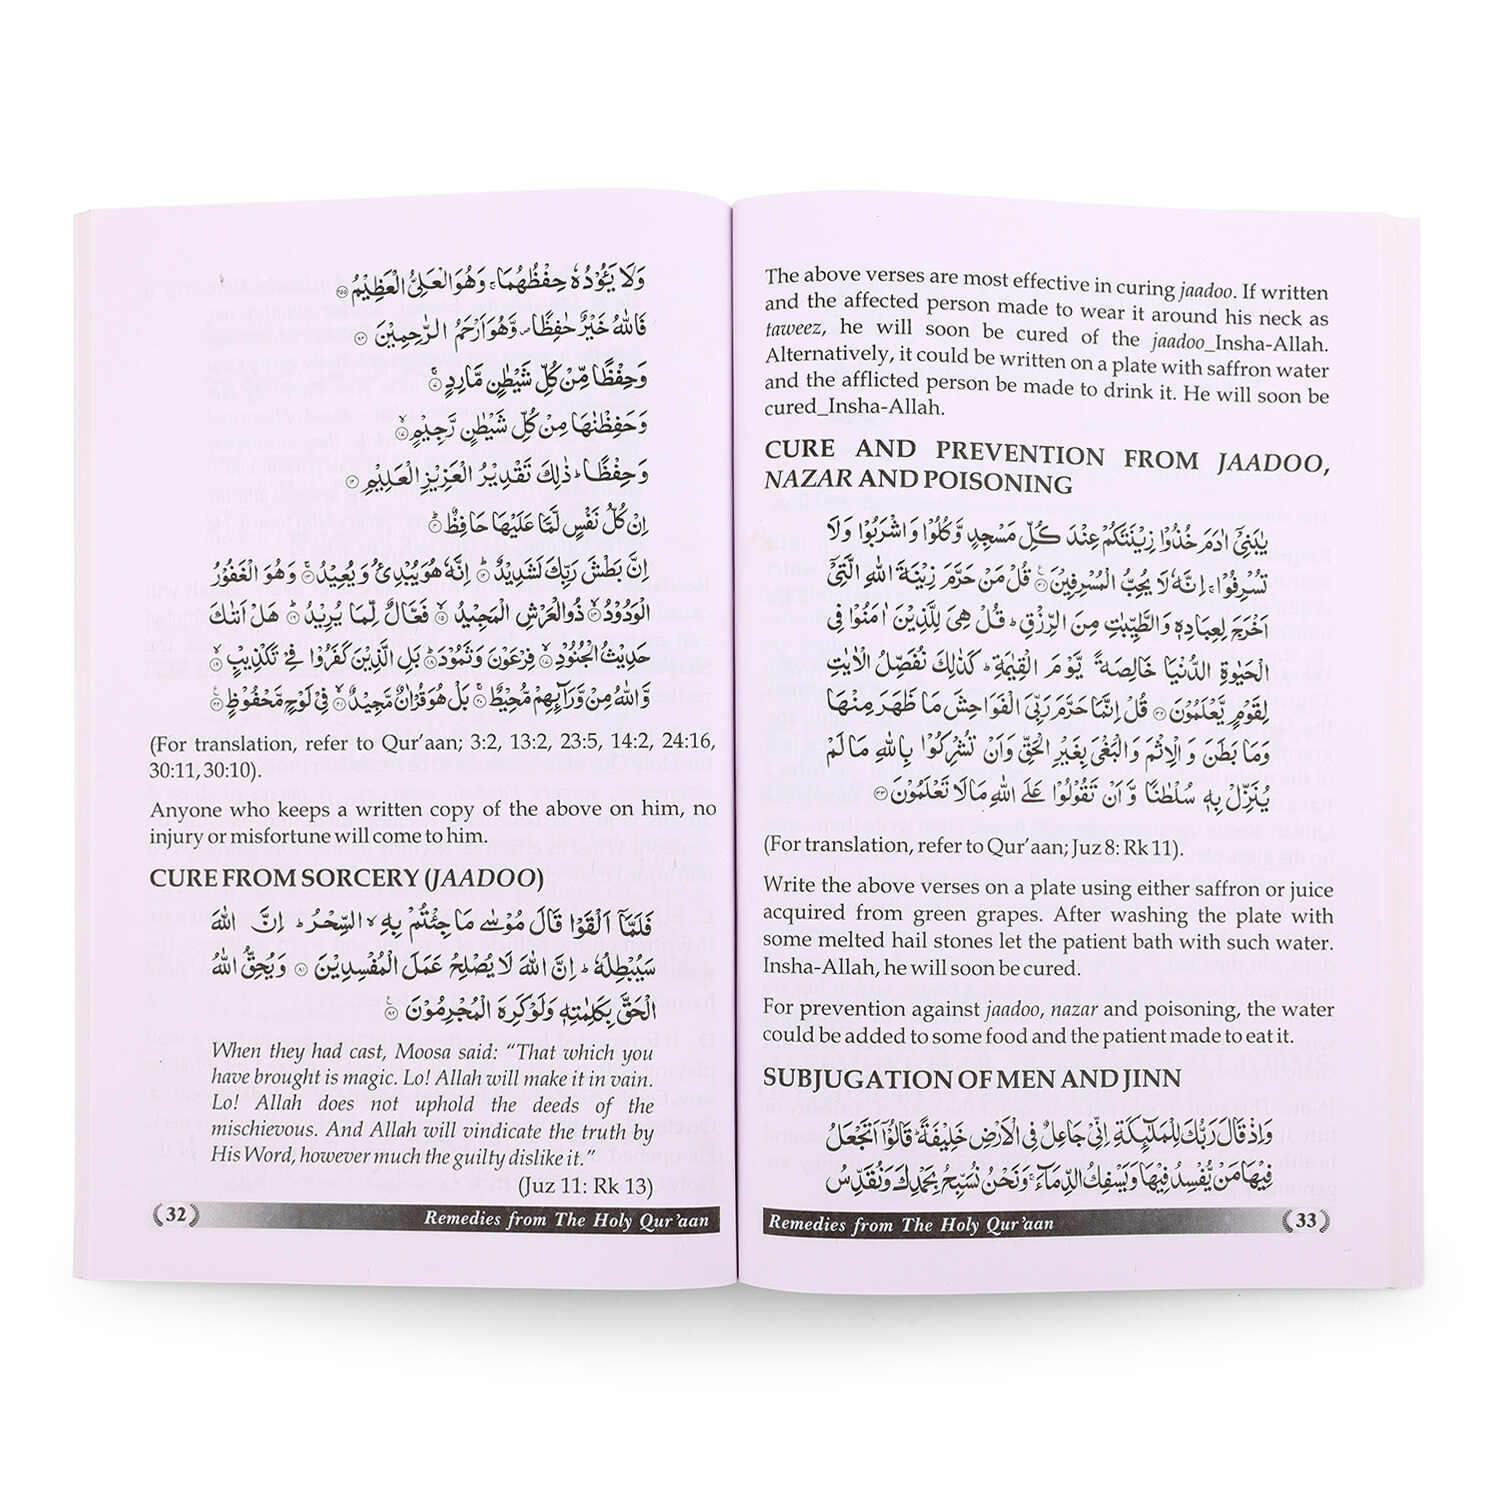 وَلَا يَـُٔوْدُهٗ حِفْظُهُمَا ۚ وَهُوَ الْعَلِيُّ الْعَظِيْمُ ۝۲۵۵
فَاللّٰهُ خَيْرٌ حٰفِظًا ۪ وَّهُوَ اَرْحَمُ الرّٰحِمِيْنَ ۝۶۴
وَحِفْظًا مِّنْ كُلِّ شَيْطٰنٍ مَّارِدٍ ۝۷ۚ
وَحَفِظْنٰهَا مِنْ كُلِّ شَيْطٰنٍ رَّجِيْمٍ ۝۱۷ۙ
وَحِفْظًا ؕ ذٰلِكَ تَقْدِيْرُ الْعَزِيْزِ الْعَلِيْمِ ۝۱۲
اِنْ كُلُّ نَفْسٍ لَّمَّا عَلَيْهَا حَافِظٌ ۝۴ؕ
اِنَّ بَطْشَ رَبِّكَ لَشَدِيْدٌ ۝۱۲ؕ اِنَّهٗ هُوَ يُبْدِئُ وَ يُعِيْدُ ۝۱۳ۚ وَهُوَ الْغَفُوْرُ
الْوَدُوْدُ ۝۱۴ۙ ذُو الْعَرْشِ الْمَجِيْدُ ۝۱۵ۙ فَعَّالٌ لِّمَا يُرِيْدُ ۝۱۶ؕ هَلْ اَتٰىكَ
حَدِيْثُ الْجُنُوْدِ ۝۱۷ۙ فِرْعَوْنَ وَثَمُوْدَ ۝۱۸ؕ بَلِ الَّذِيْنَ كَفَرُوْا فِيْ تَكْذِيْبٍ ۝۱۹ۙ
وَّاللّٰهُ مِنْ وَّرَآئِهِمْ مُّحِيْطٌ ۝۲۰ۚ بَلْ هُوَ قُرْاٰنٌ مَّجِيْدٌ ۝۲۱ۙ فِيْ لَوْحٍ مَّحْفُوْظٍ ۝۲۲
(For translation, refer to Qur'aan; 3:2, 13:2, 23:5, 14:2, 24:16,
30:11, 30:10).
Anyone who keeps a written copy of the above on him, no
injury or misfortune will come to him.
CURE FROM SORCERY (JAADOO)
فَلَمَّآ اَلْقَوْا قَالَ مُوْسٰى مَا جِئْتُمْ بِهِ ۙ السِّحْرُ ؕ اِنَّ اللّٰهَ
سَيُبْطِلُهٗ ؕ اِنَّ اللّٰهَ لَا يُصْلِحُ عَمَلَ الْمُفْسِدِيْنَ ۝۸۱ وَيُحِقُّ اللّٰهُ
الْحَقَّ بِكَلِمٰتِهٖ وَلَوْ كَرِهَ الْمُجْرِمُوْنَ ۝۸۲
When they had cast, Moosa said: "That which you
have brought is magic. Lo! Allah will make it in vain.
Lo! Allah does not uphold the deeds of the
mischievous. And Allah will vindicate the truth by
His Word, however much the guilty dislike it."
(Juz 11: Rk 13)
32 Remedies from The Holy Qur'aan
The above verses are most effective in curing jaadoo. If written
and the affected person made to wear it around his neck as
taweez, he will soon be cured of the jaadoo_Insha-Allah.
Alternatively, it could be written on a plate with saffron water
and the afflicted person be made to drink it. He will soon be
cured_Insha-Allah.
CURE AND PREVENTION FROM JAADOO,
NAZAR AND POISONING
يٰبَنِيْٓ اٰدَمَ خُذُوْا زِيْنَتَكُمْ عِنْدَ كُلِّ مَسْجِدٍ وَّكُلُوْا وَاشْرَبُوْا وَلَا
تُسْرِفُوْا ۚ اِنَّهٗ لَا يُحِبُّ الْمُسْرِفِيْنَ ۝۳۱ قُلْ مَنْ حَرَّمَ زِيْنَةَ اللّٰهِ الَّتِيْٓ
اَخْرَجَ لِعِبَادِهٖ وَالطَّيِّبٰتِ مِنَ الرِّزْقِ ؕ قُلْ هِيَ لِلَّذِيْنَ اٰمَنُوْا فِى
الْحَيٰوةِ الدُّنْيَا خَالِصَةً يَّوْمَ الْقِيٰمَةِ ؕ كَذٰلِكَ نُفَصِّلُ الْاٰيٰتِ
لِقَوْمٍ يَّعْلَمُوْنَ ۝۳۲ قُلْ اِنَّمَا حَرَّمَ رَبِّيَ الْفَوَاحِشَ مَا ظَهَرَ مِنْهَا
وَمَا بَطَنَ وَالْاِثْمَ وَالْبَغْيَ بِغَيْرِ الْحَقِّ وَاَنْ تُشْرِكُوْا بِاللّٰهِ مَا لَمْ
يُنَزِّلْ بِهٖ سُلْطٰنًا وَّاَنْ تَقُوْلُوْا عَلَى اللّٰهِ مَا لَا تَعْلَمُوْنَ ۝۳۳
(For translation, refer to Qur'aan; Juz 8: Rk 11).
Write the above verses on a plate using either saffron or juice
acquired from green grapes. After washing the plate with
some melted hail stones let the patient bath with such water.
Insha-Allah, he will soon be cured.
For prevention against jaadoo, nazar and poisoning, the water
could be added to some food and the patient made to eat it.
SUBJUGATION OF MEN AND JINN
وَاِذْ قَالَ رَبُّكَ لِلْمَلٰٓئِكَةِ اِنِّيْ جَاعِلٌ فِى الْاَرْضِ خَلِيْفَةً ؕ قَالُوْٓا اَتَجْعَلُ
فِيْهَا مَنْ يُّفْسِدُ فِيْهَا وَيَسْفِكُ الدِّمَآءَ ۚ وَنَحْنُ نُسَبِّحُ بِحَمْدِكَ وَنُقَدِّسُ
Remedies from The Holy Qur'aan 33